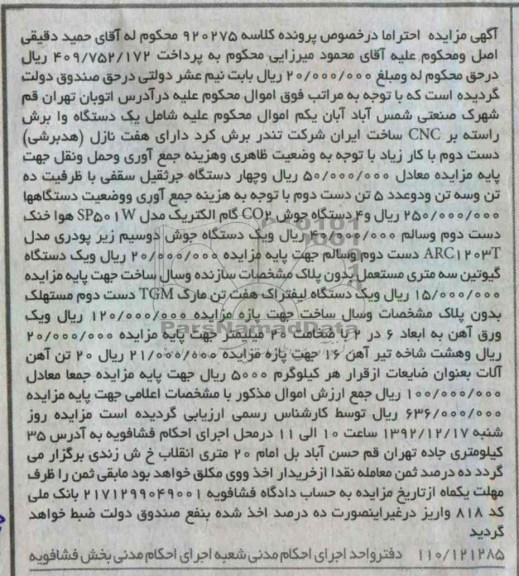 آگهی مزایده  احتراما درخصوص پرونده کلاسه ۹۲۰۲۷۵ محکوم له آقای حمید دقیقی
اصل ومحکوم علیه آقای محمود میرزایی محکوم به پرداخت ۴۰۹/۷۵۲/۱۷۲ ریال
درحق محکوم له ومبلغ ۲۰/۰۰۰/۰۰۰ ریال بابت نیم عشر دولتی درحق صندوق دولت
گردیده است که با توجه به مراتب فوق اموال محکوم علیه درآدرس اتوبان تهران قم
شهرک صنعتی شمس آباد آبان یکم اموال محکوم علیه شامل یک دستگاه وا برش
راسته بر CNC ساخت ایران شرکت تندر برش کرد دارای هفت نازل (هدبرشی)
دست دوم با کار زیاد با توجه به وضعیت ظاهری وهزینه جمع آوری وحمل ونقل جهت
پایه مزایده معادل ۵۰/۰۰۰/۰۰۰ ریال وچهار دستگاه جرثقیل سقفی با ظرفیت ده
تن وسه تن ودوعدد ۵ تن دست دوم با توجه به هزینه جمع آوری ووضعیت دستگاهها
۲۵۰/۰۰۰/۰۰۰ ریال و۴ دستگاه جوش CO۲ گام الکتریک مدل SP۵۰۱W هوا خنک
دست دوم وسالم ۴۰/۰۰۰/۰۰۰ ریال ویک دستگاه جوش دوسیم زیر پودری مدل
ARC۱۲۰۳T دست دوم وسالم جهت پایه مزایده ۲۰/۰۰۰/۰۰۰ ریال ویک دستگاه
گیوتین سه متری مستعمل بدون پلاک مشخصات سازنده وسال ساخت جهت پایه مزایده
۱۵/۰۰۰/۰۰۰ ریال ویک دستگاه لیفتراک هفت تن مارک TGM دست دوم مستهلک
بدون پلاک مشخصات وسال ساخت جهت پازه مزایده ۱۲۰/۰۰۰/۰۰۰ ریال ویک
ورق آهن به ابعاد ۶ در ۲ با ضخامت ۲۰ میلیمتر جهت پایه مزایده ۲۰/۰۰۰/۰۰۰
ریال وهشت شاخه تیر آهن ۱۶ جهت پازه مزایده ۲۱/۰۰۰/۰۰۰ ریال ۲۰ تن آهن
آلات بعنوان ضایعات ازقرار هر کیلوگرم ۵۰۰۰ ریال جهت پایه مزایده جمعا معادل
۱۰۰/۰۰۰/۰۰۰ ریال جمع ارزش اموال مذکور با مشخصات اعلامی جهت پایه مزایده
۶۳۶/۰۰۰/۰۰۰ ریال توسط کارشناس رسمی ارزیابی گردیده است مزایده روز
شنبه ۱۳۹۲/۱۲/۱۷ ساعت ۱۰ الی ۱۱ درمحل اجرای احکام فشافویه به آدرس ۳۵
کیلومتری جاده تهران قم حسن آباد بل امام ۲۰ متری انقلاب خ ش زندی برگزار می
گردد ده درصد ثمن معامله نقدا ازخریدار اخذ ووی مکلق خواهد بود مابقی ثمن را ظرف
مهلت یکماه ازتاریخ مزایده به حساب دادگاه فشافویه ۲۱۷۱۲۹۹۰۴۹۰۰۱ بانک ملی
کد ۸۱۸ واریز درغیراینصورت ده درصد اخذ شده بنفع صندوق دولت ضبط خواهد
گردید
۱۱۰/۱۲۱۲۸۵   دفترواحد اجرای احکام مدنی شعبه اجرای احکام مدنی بخش فشافویه
ParsNamadData